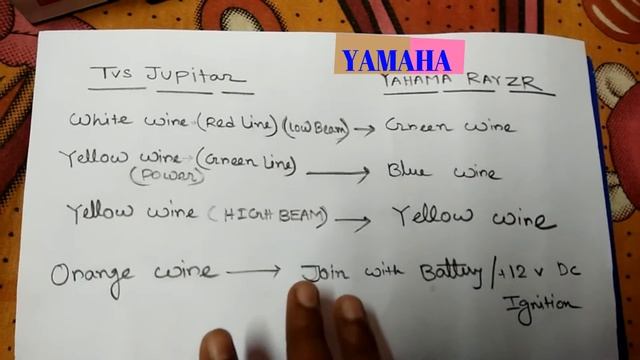 YAMAHA
TVS JUPITAR YAHAMA RAYZR
White wire (Red Line) (Low Beam) → Green wire
Yellow wire (Green Line) → Blue wire
(POWER)
Yellow wire (HIGH BEAM) → Yellow wire
Orange wire → Join with Battery/+12 v DC
Ignition